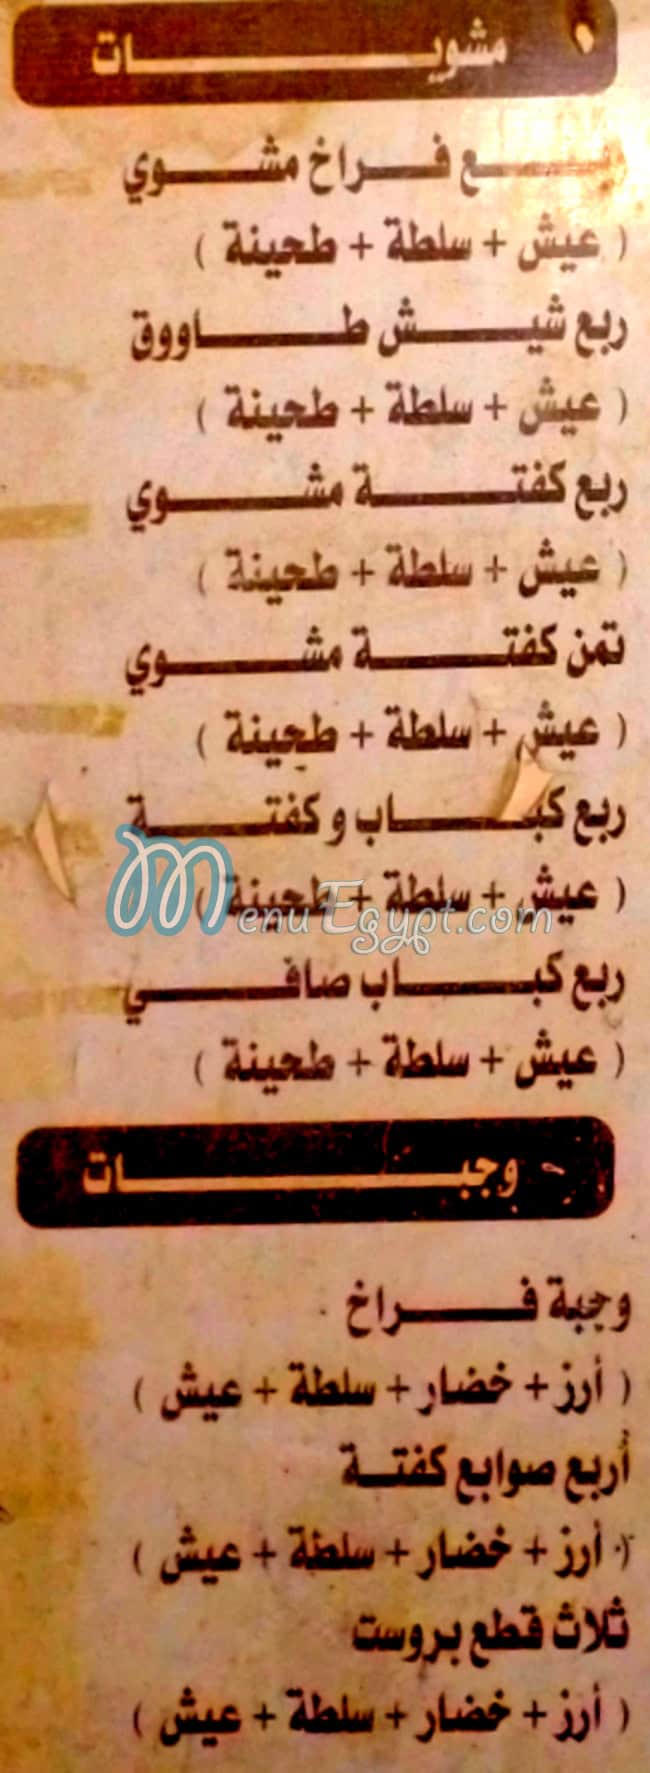 مشويات
ربع فراخ مشوي
( عيش + سلطة + طحينة )
ربع شيش طاووق
( عيش + سلطة + طحينة )
ربع كفتة مشوي
( عيش + سلطة + طحينة )
تمن كفتة مشوي
( عيش + سلطة + طحينة )
ربع كباب و كفتة
( عيش + سلطة + طحينة )
MenuEgypt.com
ربع كباب صافي
( عيش + سلطة + طحينة )
وجبات
وجبة فراخ
( أرز + خضار + سلطة + عيش )
أربع صوابع كفتة
( أرز + خضار + سلطة + عيش )
ثلاث قطع بروست
( أرز + خضار + سلطة + عيش )